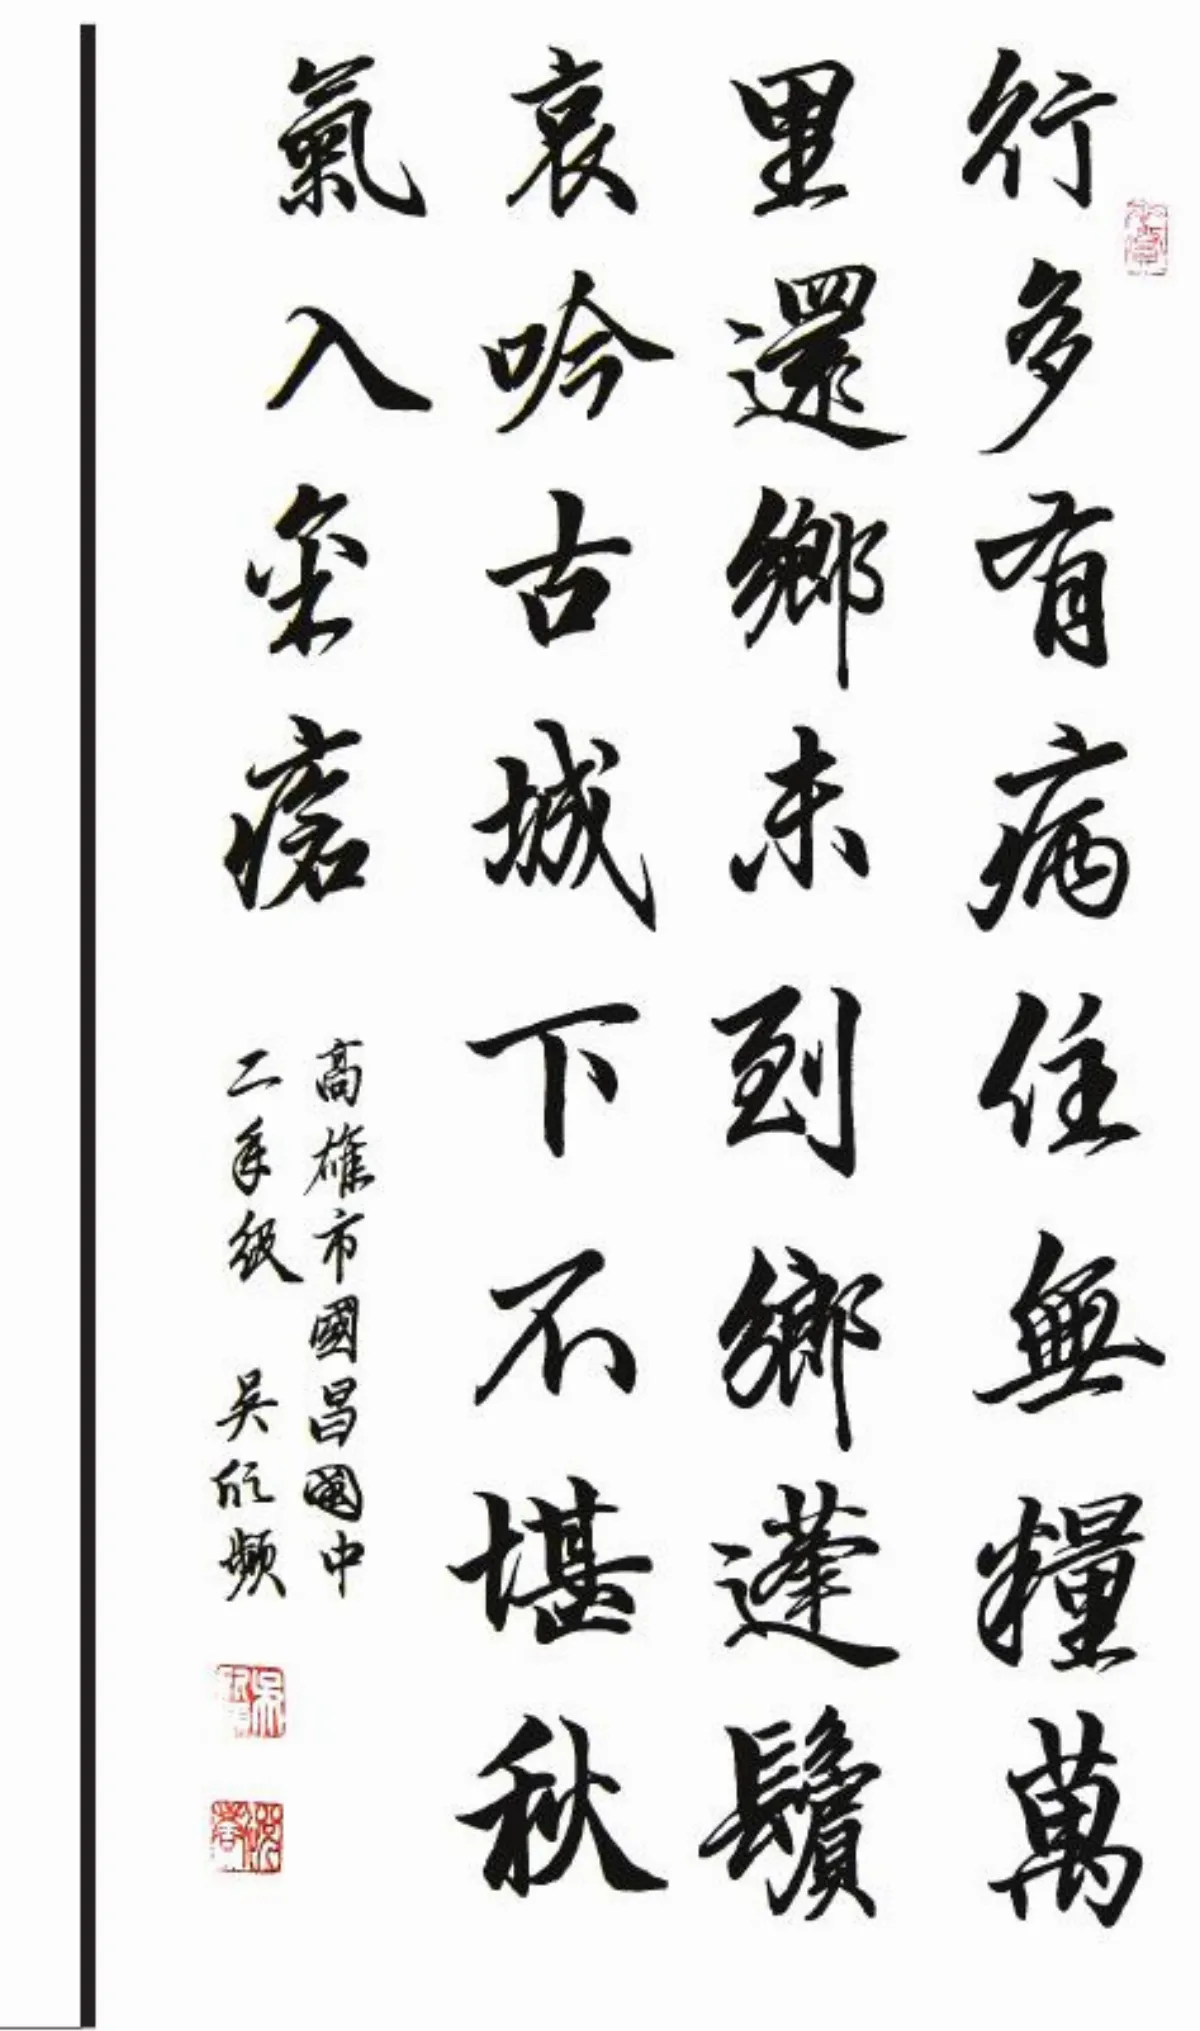 行多有病住無糧萬
里還鄉未到鄉蓬鬢
哀吟古城下不堪秋
氣入金瘡
高雄市國昌國中
二年級 吳欣頻